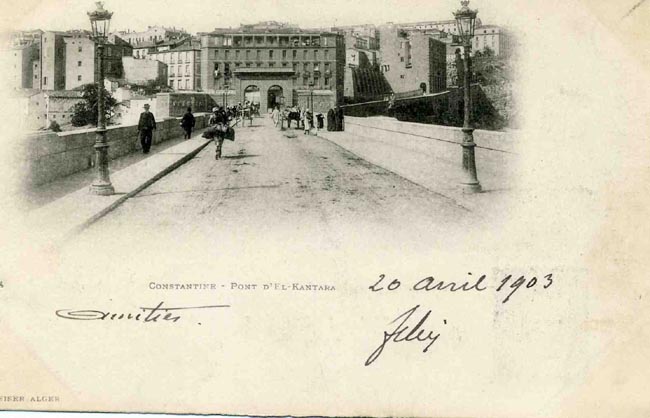 CONSTANTINE - PONT D'EL-KANTARA
20 avril 1903
Amitiés
EISER ALGER